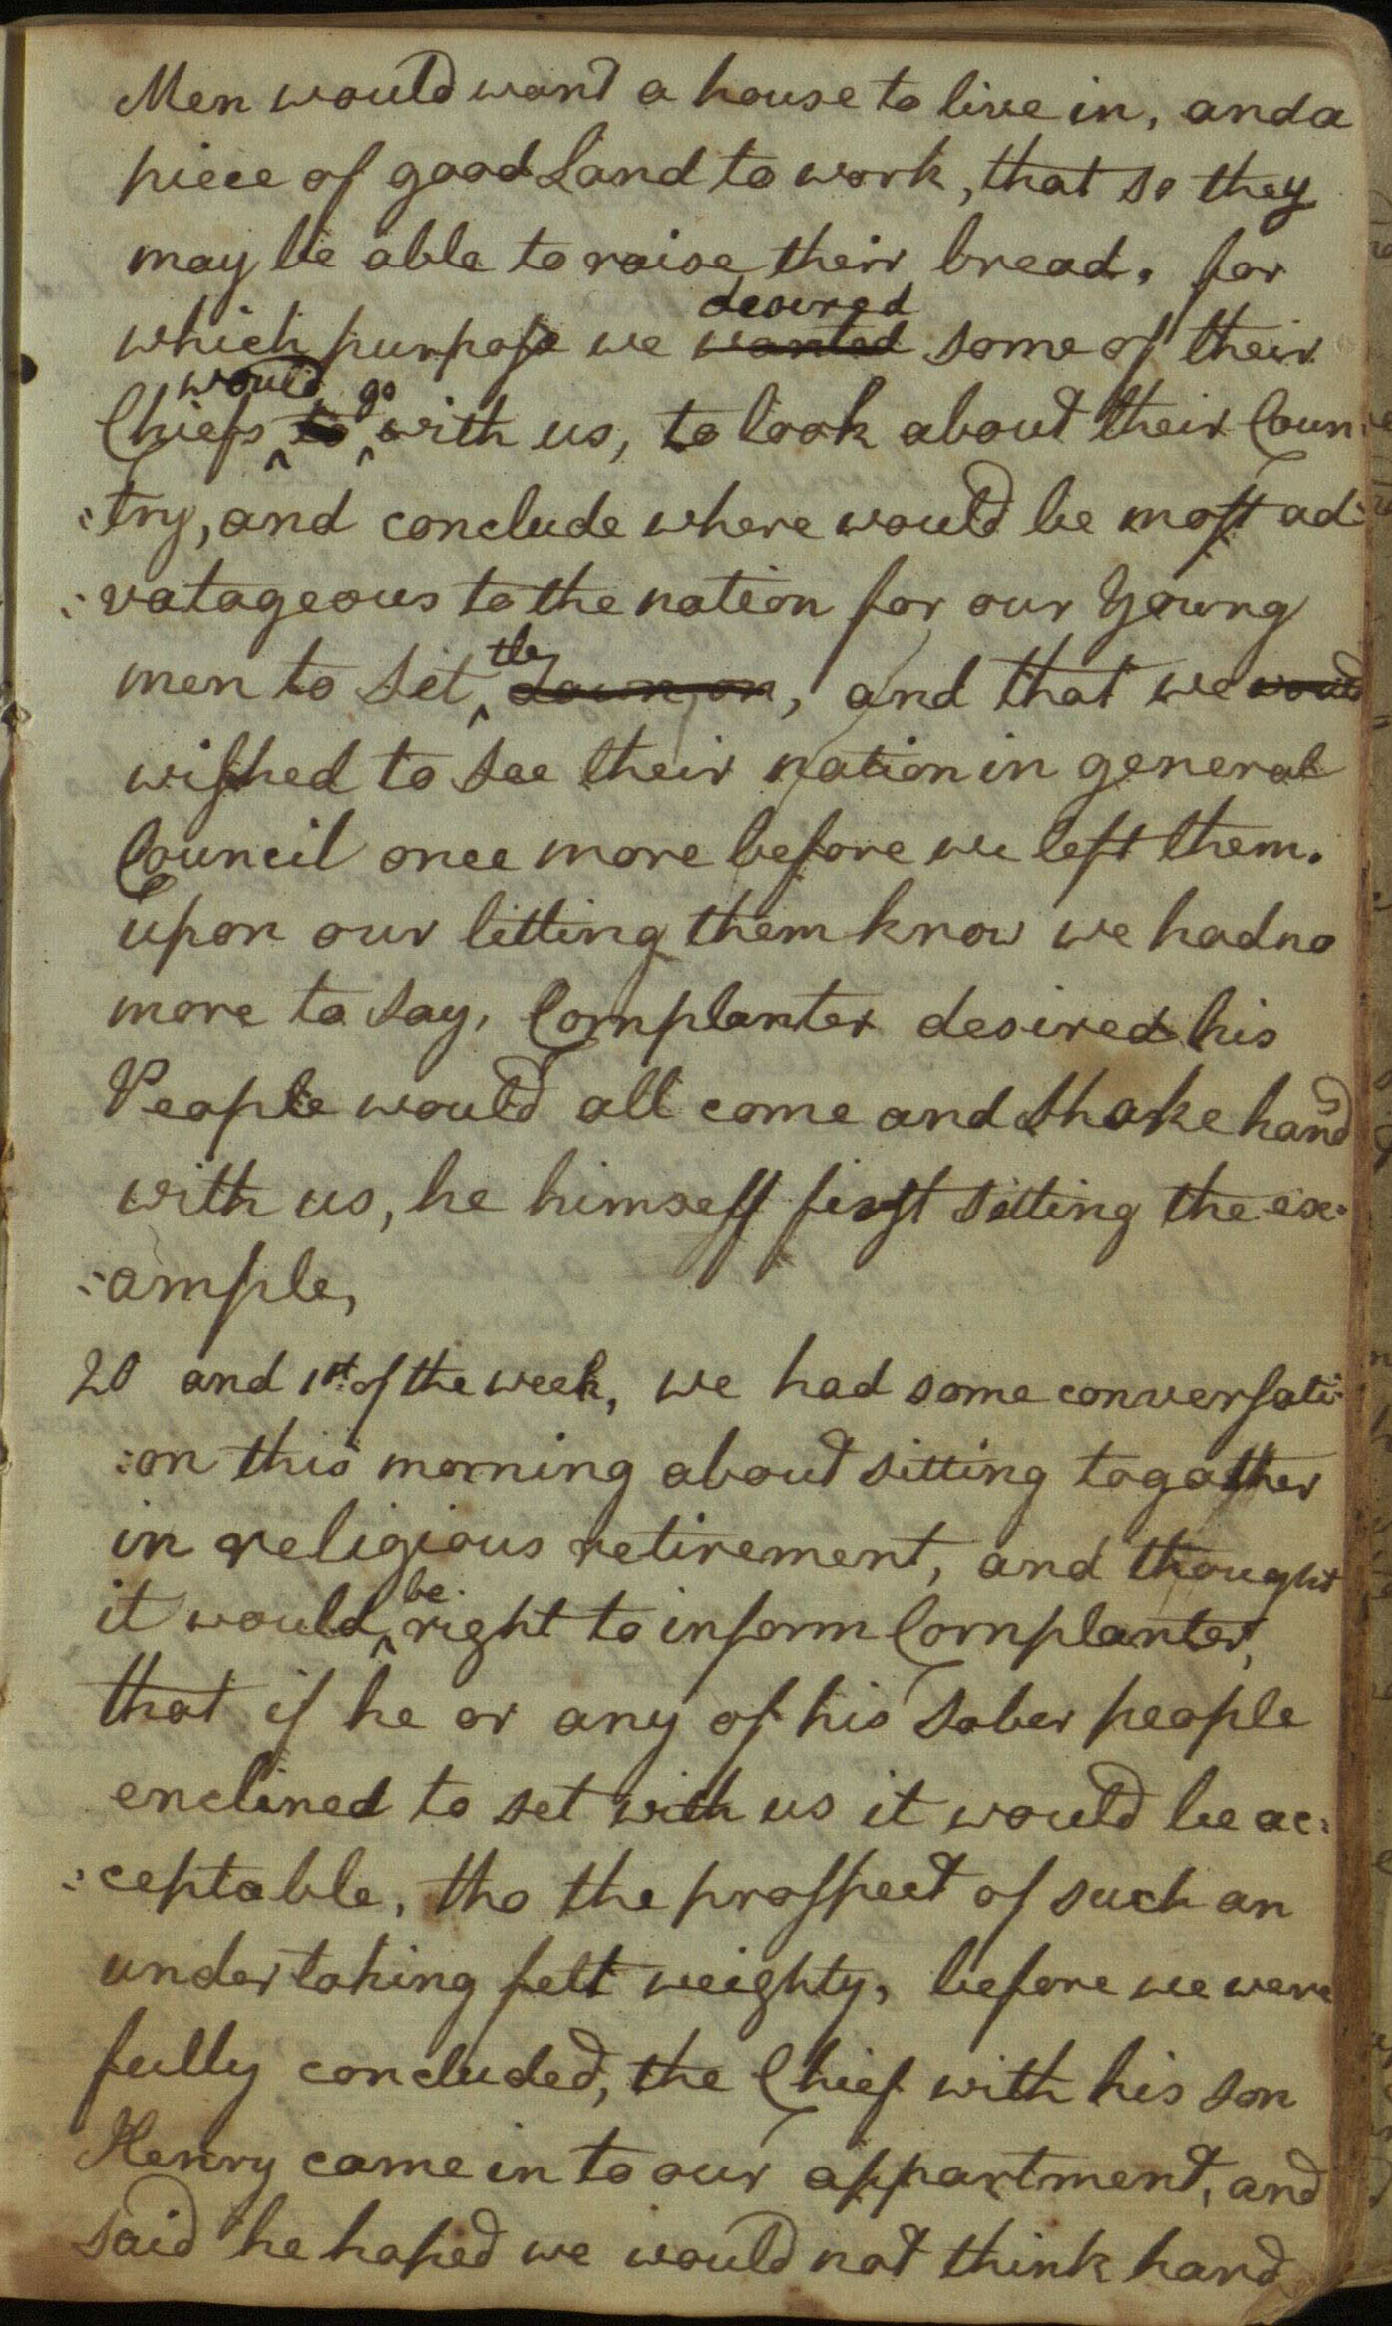 Men would want a house to live in, and a
piece of good Land to work, that so they
may be able to raise their bread. for
which purpose we wanted desired some of their
Chiefs to would go with us, to look about their Coun
:try, and conclude where would be most ad:
:vatageous to the nation for our Young
men to set down, on tle, and that we would
wished to see their nation in general
Council once more before we left them.
upon our letting them know we had no
more to say, Cornplanter desired his
People would all come and shake hands
with us, he himself first setting the ex:
:ample,
20 and 1st. of the week, we had some conversati:
:on this morning about sitting togather
in religious retirement, and thought
it would be right to inform Cornplanter,
that if he or any of his sober people
enclined to set with us it would be ac:
:ceptable, tho the prospect of such an
undertaking felt weighty, before we were
fully concluded, the Chief with his son
Henry came in to our appartment, and
said he hoped we would not think hard